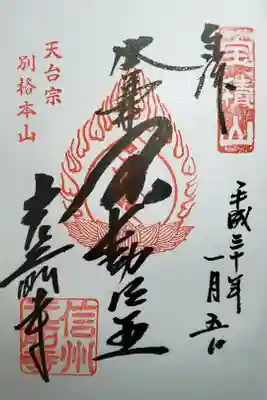 奉拝
宝積山
平成三十年
一月五日
不動明王
天台宗
別格本山
光前寺
信州